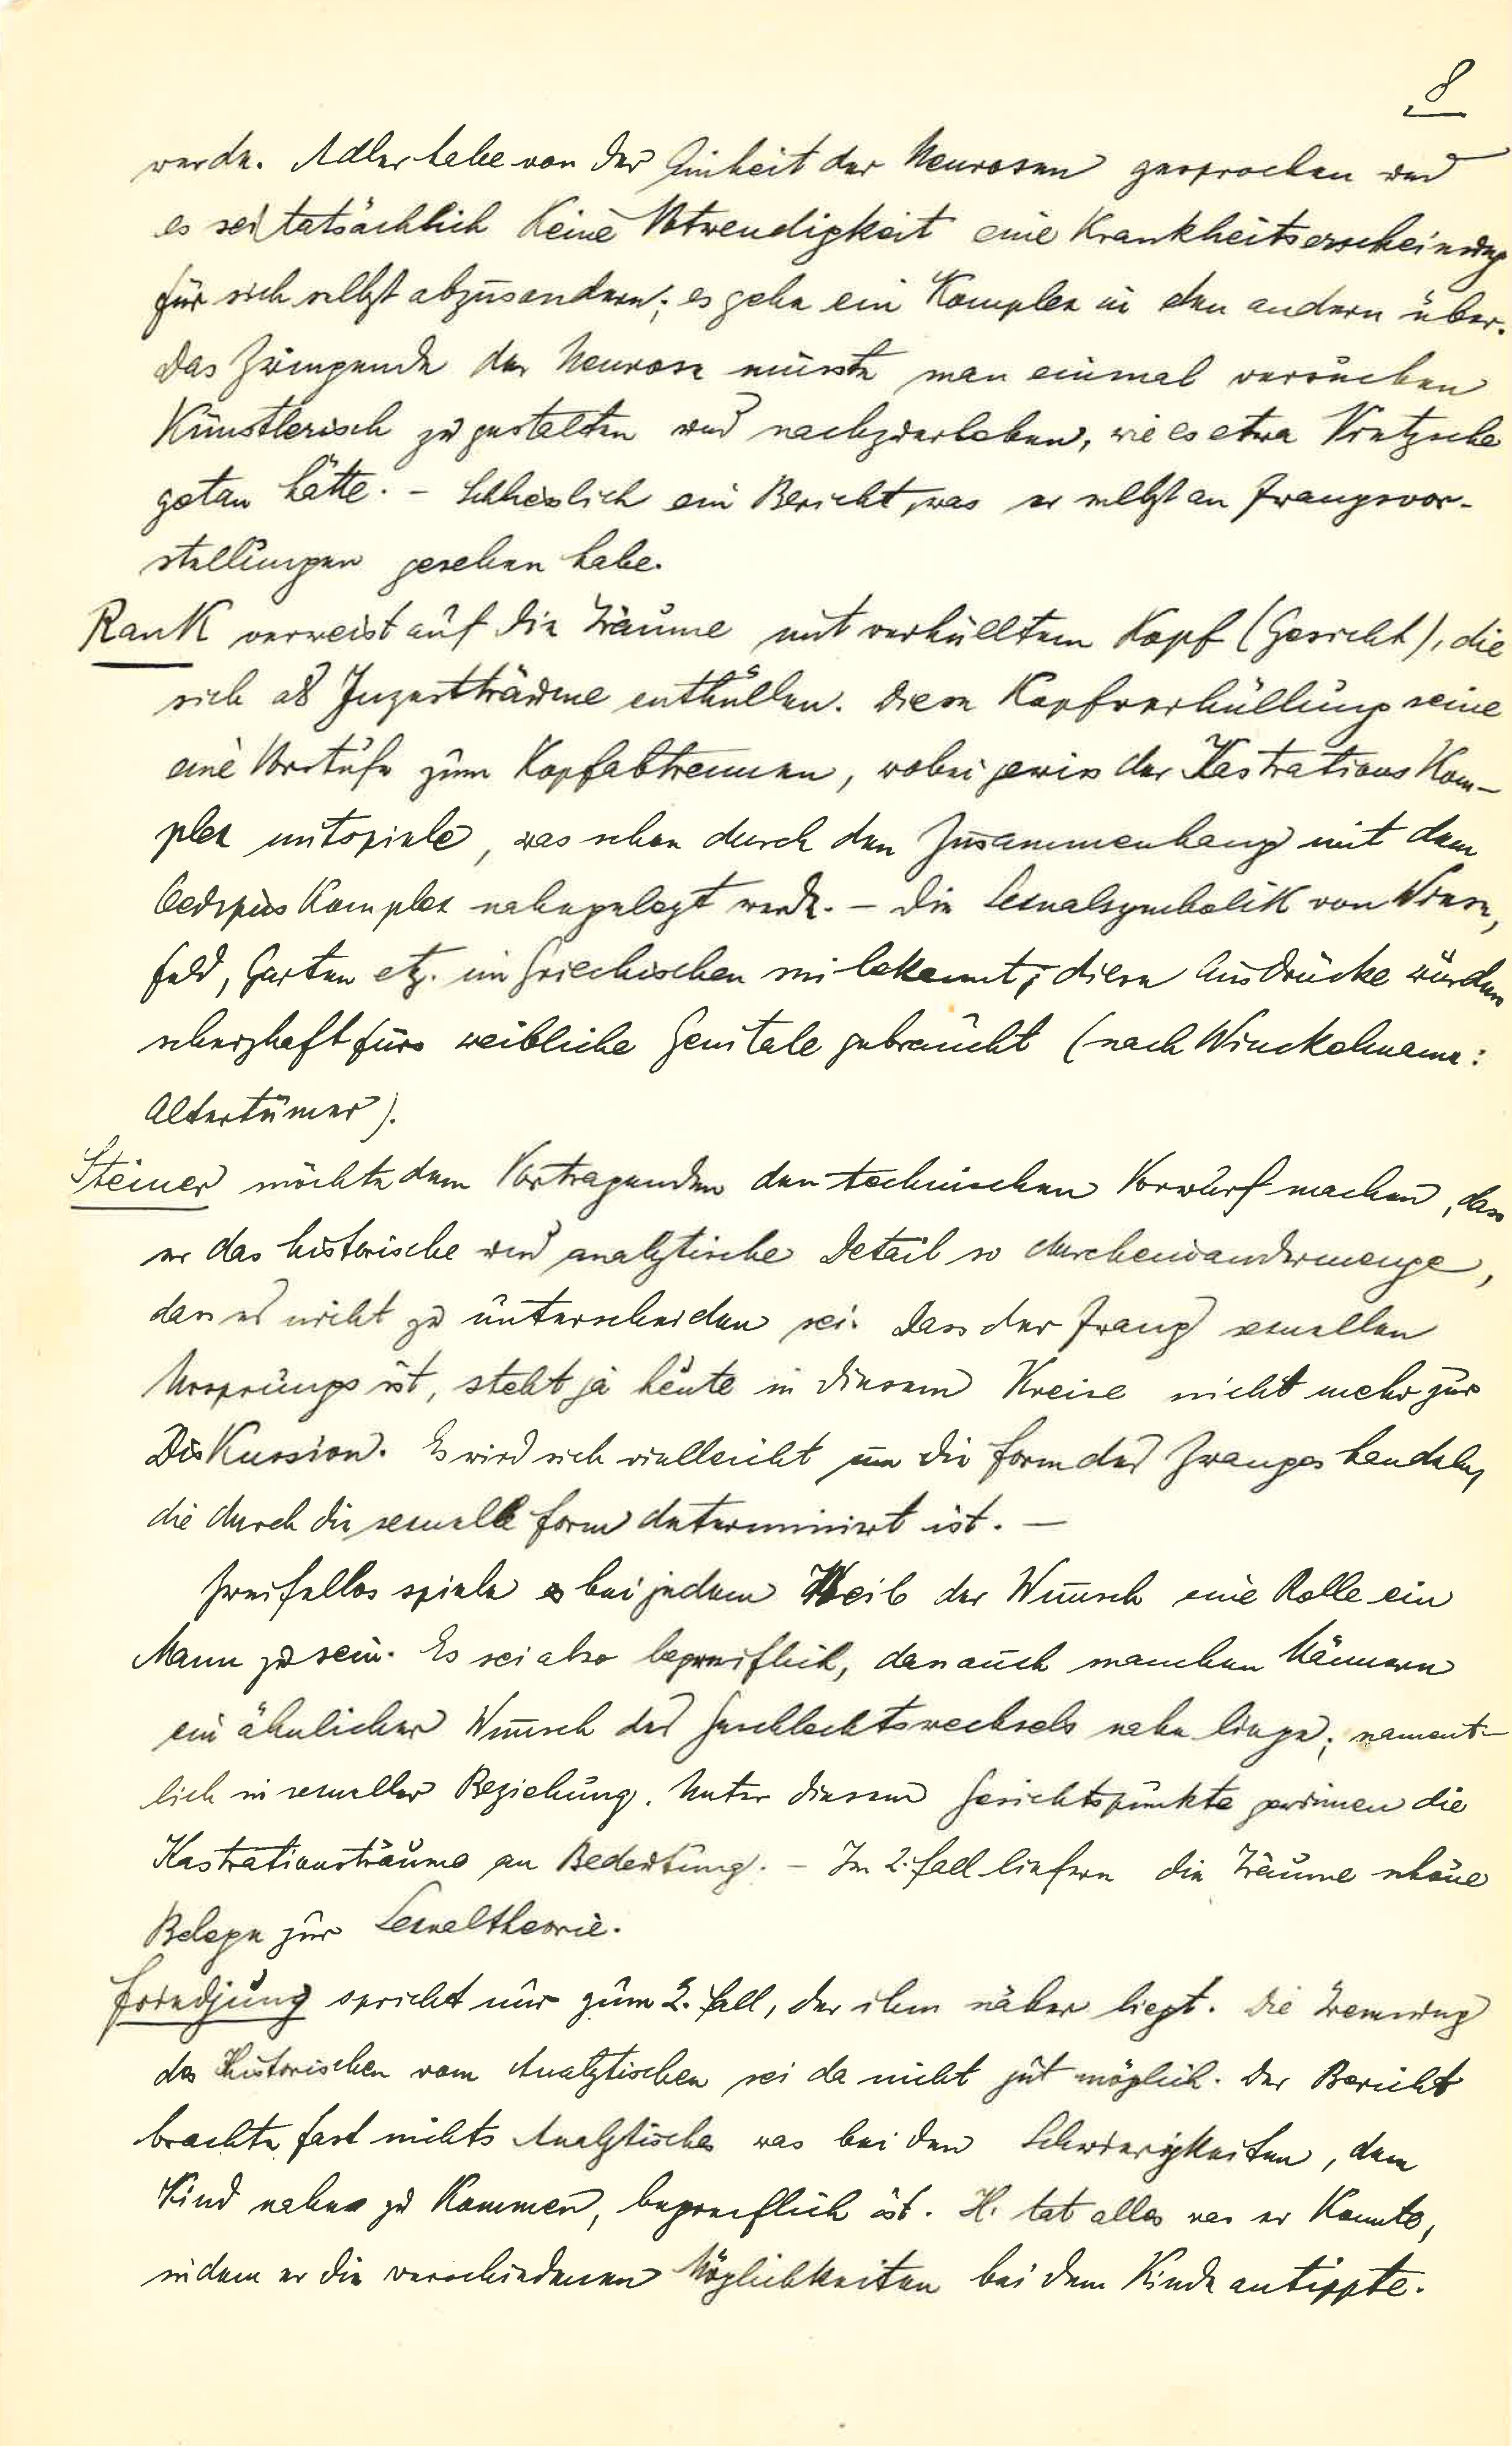 8
werde. Adler habe von der Einheit der Neurosen gesprochen und
es sei tatsächlich keine Notwendigkeit eine Krankheitserscheinung
für sich selbst abzusondern; es gehe ein Komplex in den andern über.
Das Zwingende der Neurose müsste man einmal versuchen
künstlerisch zu gestalten und nachzuerleben, wie es etwa Nietzsche
getan hätte. – Schliesslich ein Bericht, was er selbst an Zwangsvor-
stellungen gesehen habe.
Rank verweist auf die Träume mit verhülltem Kopf (Gesicht), die
sich als Inzestträume enthüllen. Diese Kopfverhüllung seine
eine Vorstufe zum Kopfabtrennen, wobei gewiss der Kastrations Kom-
plex mitspiele, was schon durch den Zusammenhang mit dem
Oedipus Komplex nahegelegt werde. – Die Sexualsymbolik von Wiese,
Feld, Garten etz. im Griechischen sei bekannt; diese Ausdrücke würden
scherzhaft fürs weibliche Genitale gebraucht (nach Winckelmann:
Altertümer).
Steiner möchte dem Vortragenden den technischen Vorwurf machen, dass
er das historische und analytische Detail so durcheinandermenge,
dass es nicht zu unterscheiden sei. Dass der Zwang sexuellen
Ursprungs ist, steht ja heute in diesem Kreise nicht mehr zur
Diskussion. Es wird sich vielleicht um die Form des Zwanges handeln,
die durch die sexuelle Form determiniert ist. –
Zweifellos spiele es bei jedem Weib der Wunsch eine Rolle ein
Mann zu sein. Es sei also begreiflich, dass auch manchen Männern
ein ähnlicher Wunsch des Geschlechtswechsels nahe liege; nament-
lich in sexueller Beziehung. Unter diesem Gesichtspunkte gewinnen die
Kastrationsträume an Bedeutung. – Im 2. Fall liefern die Träume schöne
Belege zur Sexualtheorie.
Friedjung spricht nur zum 2. Fall, der ihm näher liegt. Die Trennung
des Historischen vom Analytischen sei da nicht gut möglich. Der Bericht
brachte fast nichts Analytisches was bei den Schwierigkeiten, dem
Kind nahe zu kommen, begreiflich ist. H. tat alles was er konnte,
indem er die verschiedenen Möglichkeiten bei dem Kinde antippte.